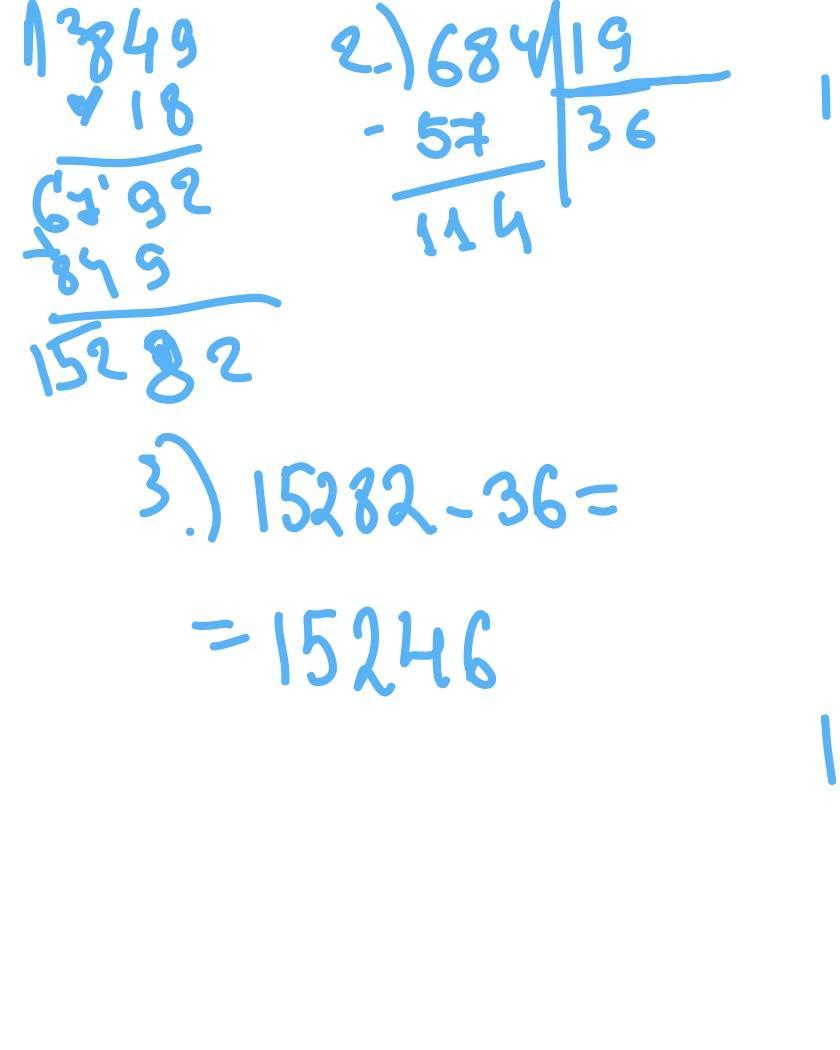 1) 849
× 18
6792
+ 849
15282
2.) 684 | 19
- 57 | 36
114
3.) 15282 - 36 =
= 15246